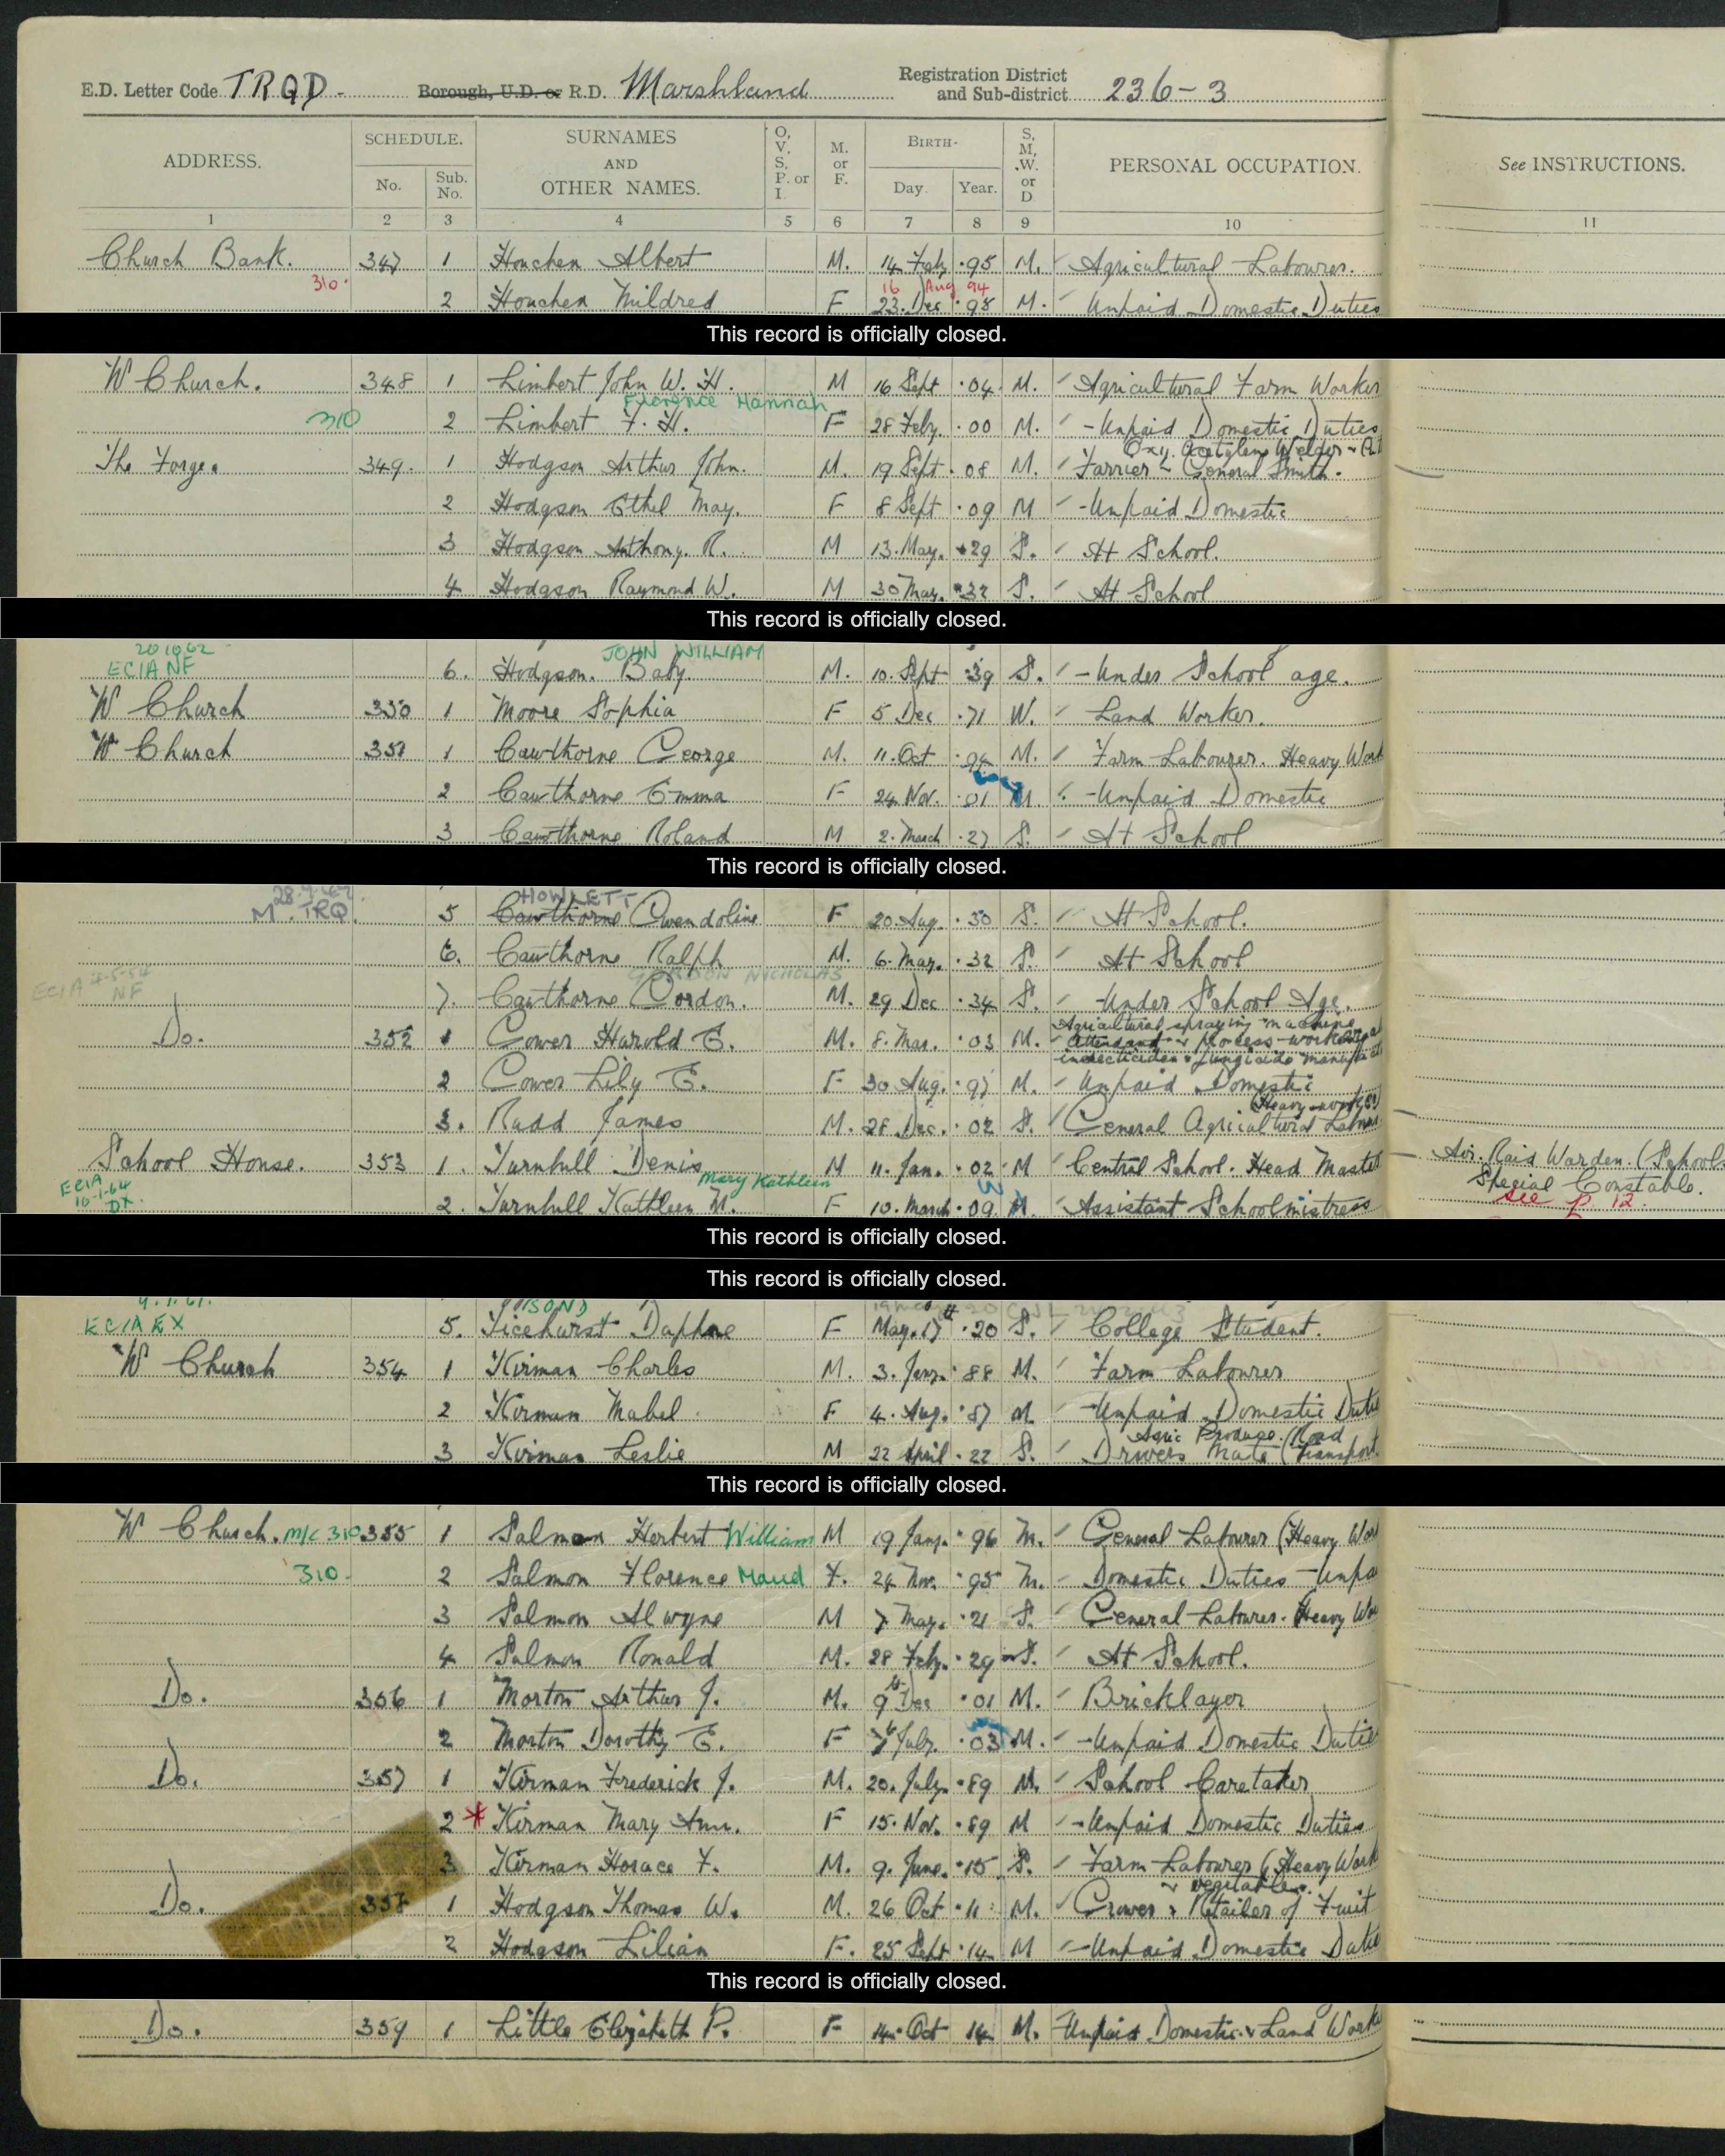 E.D. Letter Code TRQD - Borough, U.D. or R.D. Marshland Registration District and Sub-district 236-3
ADDRESS. SCHEDULE. No. Sub. No. SURNAMES AND OTHER NAMES. O, V, S, P. or I. M. or F. BIRTH- Day. Year. S, M, W. or D PERSONAL OCCUPATION. See INSTRUCTIONS.
1 2 3 4 5 6 7 8 9 10 11
Church Bank. 347 1 Houchen Albert M. 14 Feb, .95 M. Agricultural Labourer.
310. 16 Aug 94
2 Houchen Mildred F 23. Dec .98 M. Unpaid Domestic Duties
This record is officially closed.
W Church. 348 1 Limbert John W. H. M 16 Sept .04. M. Agricultural Farm Worker
Florence Hannah
310 2 Limbert F. H. F 28 Feby. .00 M. - Unpaid Domestic Duties
Oxy. Acetylene Welder
The Forge. 349. 1 Hodgson Arthur John. M. 19 Sept. 08 M. Farrier & General Smith.
2 Hodgson Ethel May. F 8 Sept .09 M - Unpaid Domestic
3 Hodgson Anthony. R. M 13. May. 29 S. At School.
4 Hodgson Raymond W. M 30 Mar. 32 S. At School
This record is officially closed.
20 10 62 JOHN WILLIAM
ECIA NF 6. Hodgson. Baby. M. 10. Sept .39 S. - Under School age.
W Church 350 1 Moore Sophia F 5 Dec .71 W. Land Worker.
W Church 351 1 Cawthorne George M. 11. Oct .94 M. Farm Labourer. Heavy Work
2 Cawthorne Emma F 24 Nov. .01 M. - Unpaid Domestic
3 Cawthorne Roland M 2. March .27 S. At School
This record is officially closed.
HOWLETT
M. TRQ. 5 Cawthorne Gwendoline F 20 Aug. .30 S. At School.
6. Cawthorne Ralph M. 6. Mar. .32 S. At School
ECIA 4-5-54 GORDON NICHOLAS
NF 7. Cawthorne Gordon. M. 29 Dec .34 S. - Under School Age.
Agricultural spraying machine
Do. 352 1 Gower Harold E. M. 8. Mar. .03 M. attendant & process worker
insecticides & fungicide
2 Gower Lily E. F 30 Aug. .97 M. Unpaid Domestic
(Heavy work)
3. Rudd James M. 28 Dec. .02 S. General Agricultural Labour
School House. 353 1. Turnbull Denis M 11. Jan. .02 M Central School. Head Master Air. Raid Warden. (School
ECIA Mary Kathleen Special Constable.
10-1-64 DX. 2. Turnbull Kathleen M. F 10. March .09 M. Assistant Schoolmistress see P 12.
This record is officially closed.
This record is officially closed.
9.1.61. BOND
ECIA EX 5. Ticehurst Daphne F May. 17th .20 S. College Student.
W Church 354 1 Kirman Charles M. 3. Jany. 88 M. Farm Labourer
2 Kirman Mabel F 4. Aug. .87 M. - Unpaid Domestic Dutie
Agric Produce. (Road
3 Kirman Leslie M 22 April .22 S. Drivers Mate (Transport
This record is officially closed.
W Church. M/C 310 355 1 Salmon Herbert William M 19 Jany. .96 M. General Labourer (Heavy Wor
310. 2 Salmon Florence Maud F. 24 Nov. .95 M. Domestic Duties - Unpa
3 Salmon Alwyne M 7 May. .21 S. General Labourer. Heavy Wo
4 Salmon Ronald M. 28 Feby. .29 S. At School.
Do. 356 1 Morton Arthur J. M. 9th Dec .01 M. Bricklayer
2 Morton Dorothy E. F 7th July. .03 M. - Unpaid Domestic Dutie
Do. 357 1 Kirman Frederick J. M. 20. July .89 M. School Caretaker
2 * Kirman Mary Ann. F 15. Nov. .89 M - Unpaid Domestic Duties
3 Kirman Horace F. M. 9. June. .15 S. Farm Labourer (Heavy Work
& vegetables.
Do. 358 1 Hodgson Thomas W. M. 26 Oct .11 M. Grower & Retailer of Fruit
2 Hodgson Lilian F. 25 Sept .14 M - Unpaid Domestic Dutie
This record is officially closed.
Do. 359 1 Little Elizabeth P. F 14. Oct 14 M. Unpaid Domestic & Land Work